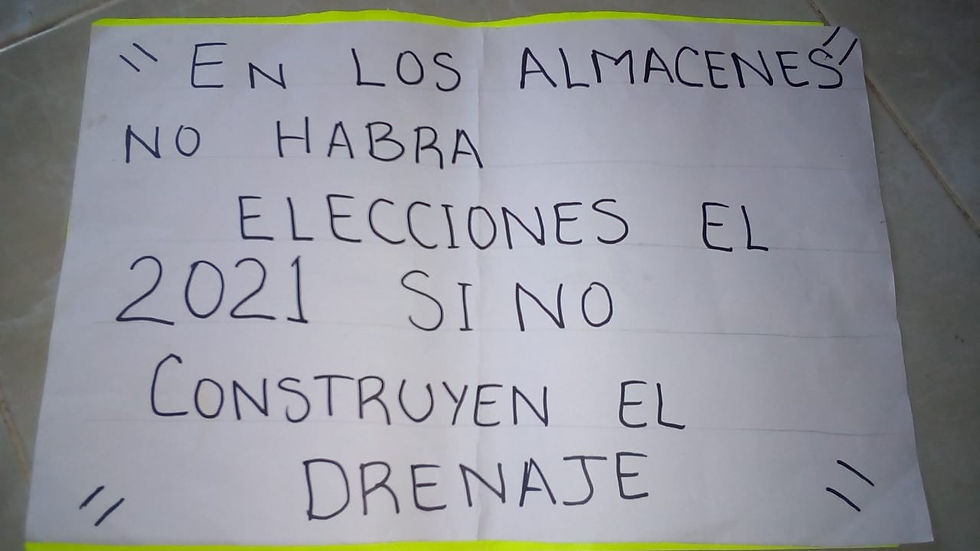 " EN LOS ALMACENES "
NO HABRA
ELECCIONES EL
2021 SI NO
CONSTRUYEN EL
" DRENAJE "